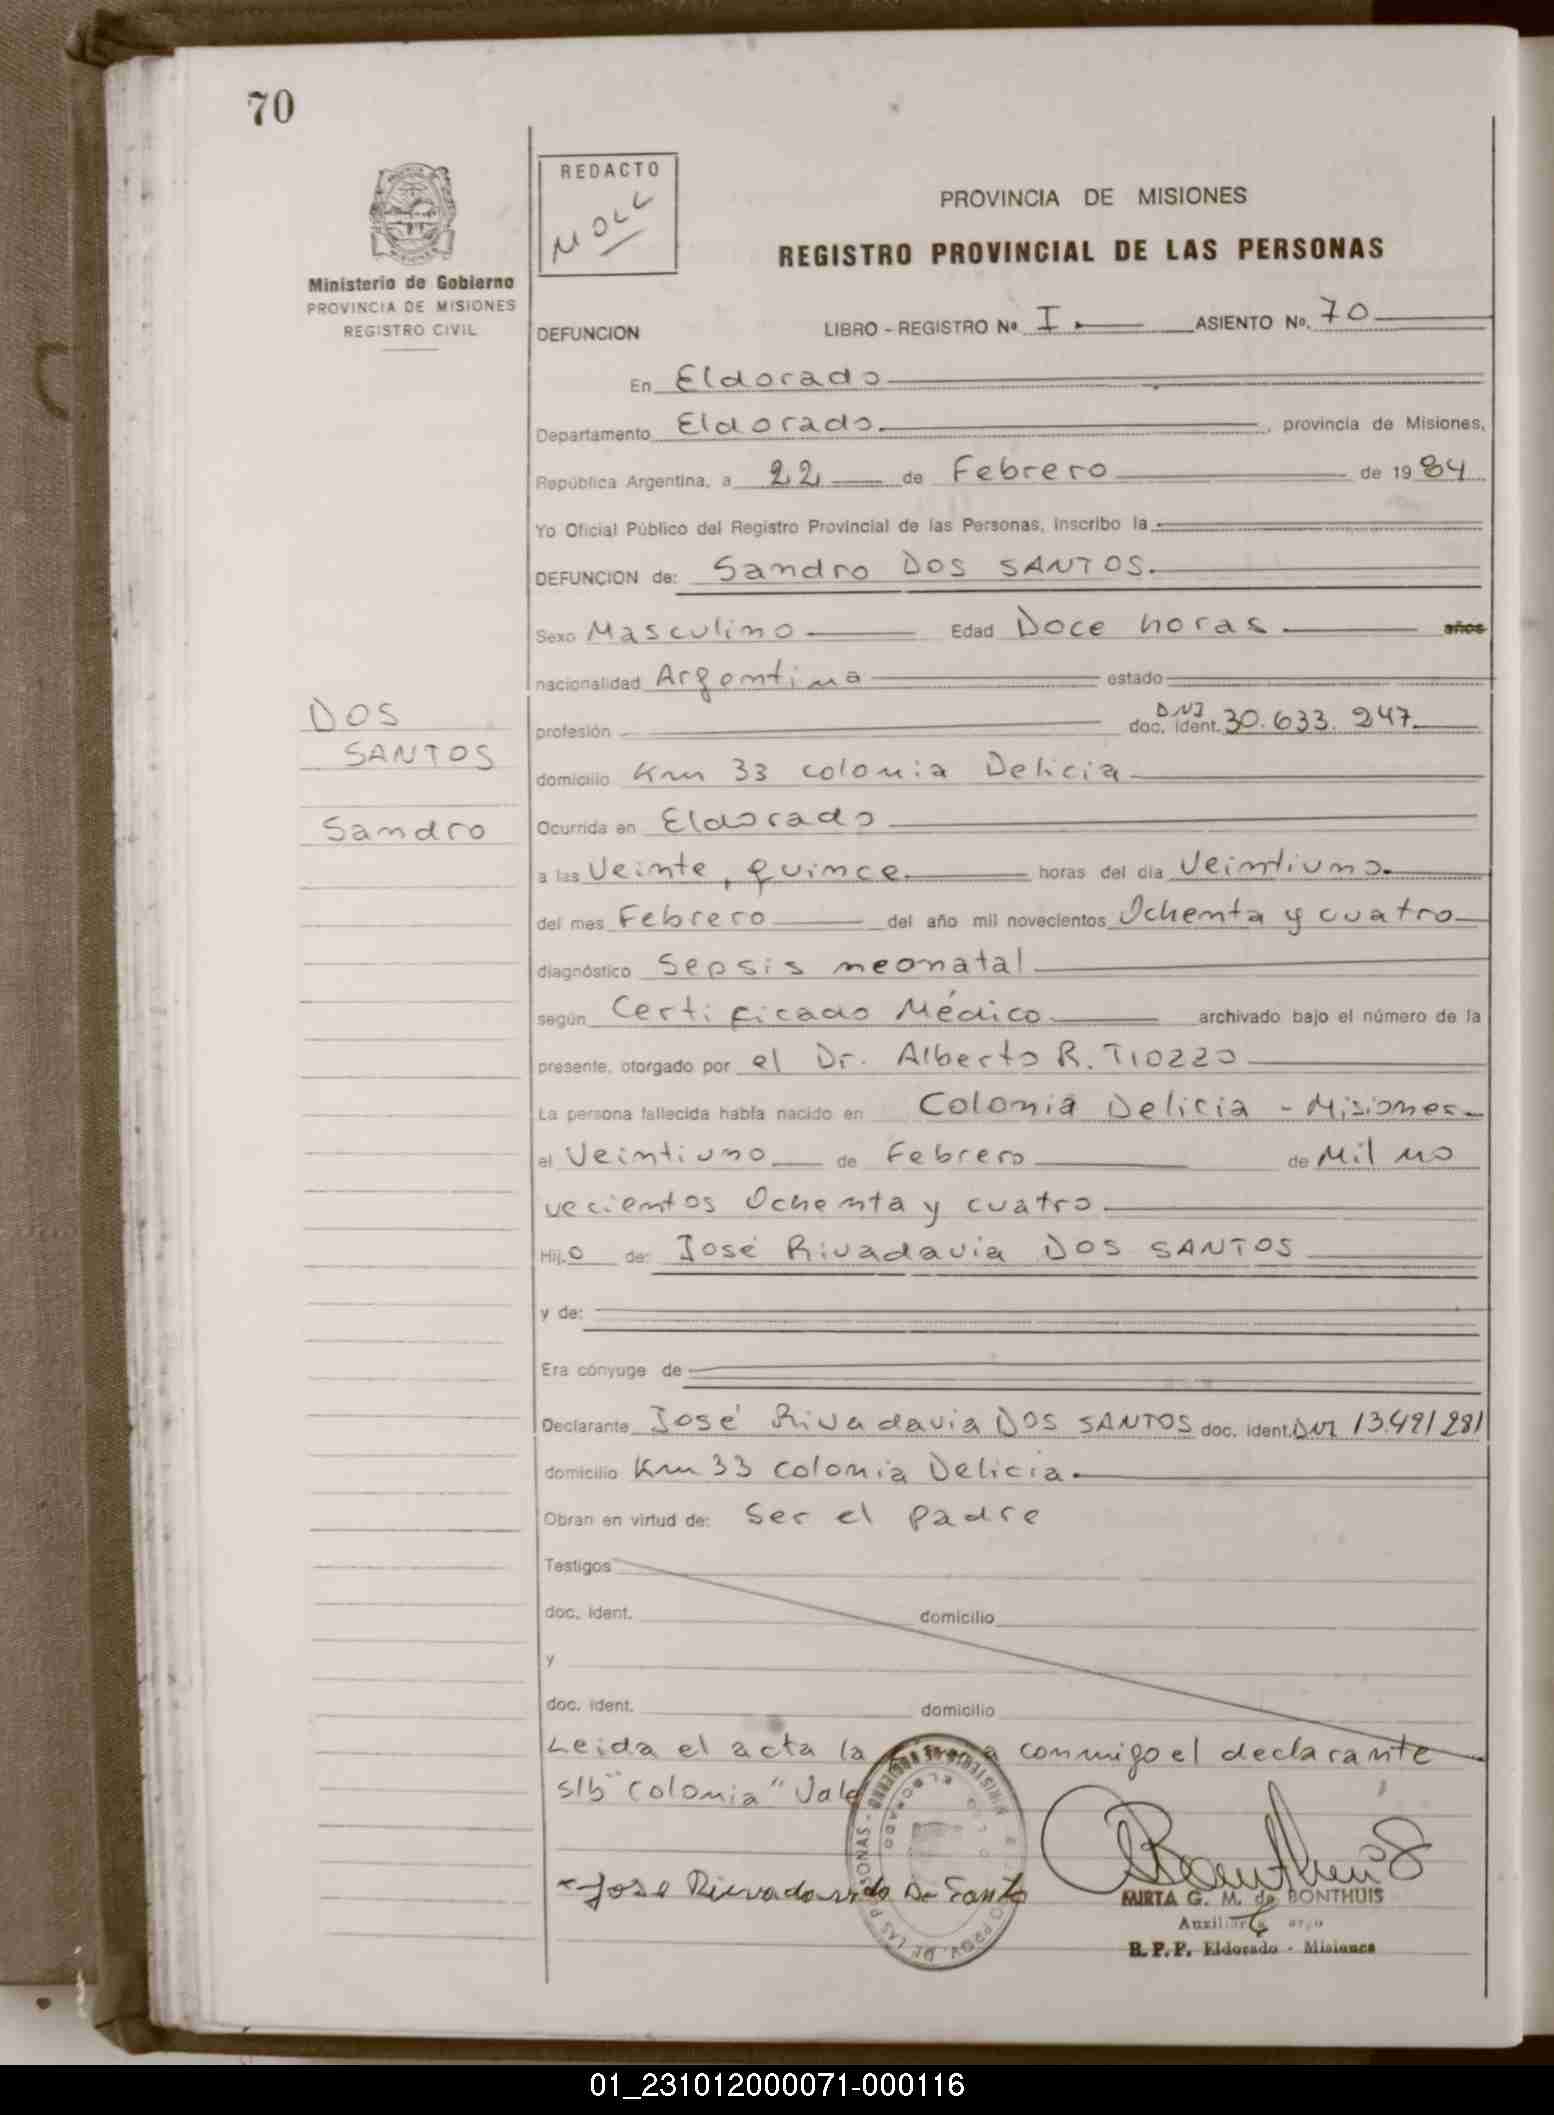 70
REDACTO
MOLL
Ministerio de Gobierno
PROVINCIA DE MISIONES
REGISTRO CIVIL
PROVINCIA DE MISIONES
REGISTRO PROVINCIAL DE LAS PERSONAS
DEFUNCION LIBRO - REGISTRO Nº I ASIENTO Nº. 70
En Eldorado
Departamento Eldorado, provincia de Misiones,
República Argentina, a 22 de Febrero de 1984
Yo Oficial Público del Registro Provincial de las Personas, inscribo la
DEFUNCION de: Sandro DOS SANTOS.
Sexo Masculino Edad Doce horas años
nacionalidad Argentina estado
profesión doc. ident. DNI 30.633.247
DOS
SANTOS
Sandro
domicilio Km 33 colonia Delicia
Ocurrida en Eldorado
a las Veinte, quince horas del día Veintiuno.
del mes Febrero del año mil novecientos Ochenta y cuatro
diagnóstico Sepsis neonatal
según Certificado Médico archivado bajo el número de la
presente, otorgado por el Dr. Alberto R. TIOZZO
La persona fallecida había nacido en Colonia Delicia - Misiones
el Veintiuno de Febrero de Mil no
vecientos Ochenta y cuatro
Hijo de: José Rivadavia DOS SANTOS
y de:
Era cónyuge de
Declarante José Rivadavia DOS SANTOS doc. ident. DNI 13.491281
domicilio Km 33 colonia Delicia.
Obran en virtud de: Ser el padre
Testigos
doc. ident. domicilio
y
doc. ident. domicilio
Leida el acta la conmigo el declarante
s/b "colonia" Vale
MINISTERIO DE GOBIERNO
ELDORADO
PROV. DE LAS PERSONAS
MIRTA G. M. de BONTHUIS
R. P. P. Eldorado - Misiones
01_231012000071-000116